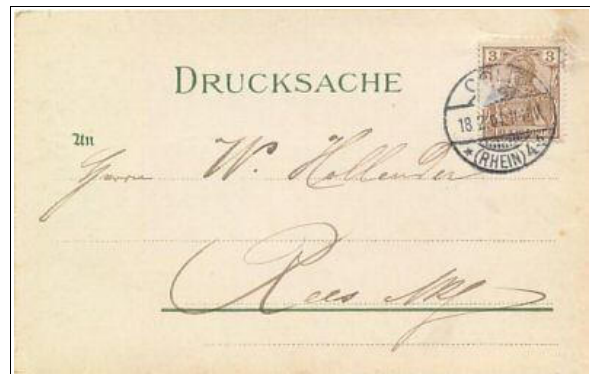 DRUCKSACHE
3 3
18.2.
*(RHEIN)4*
An
Herrn W. Hollender
Rees